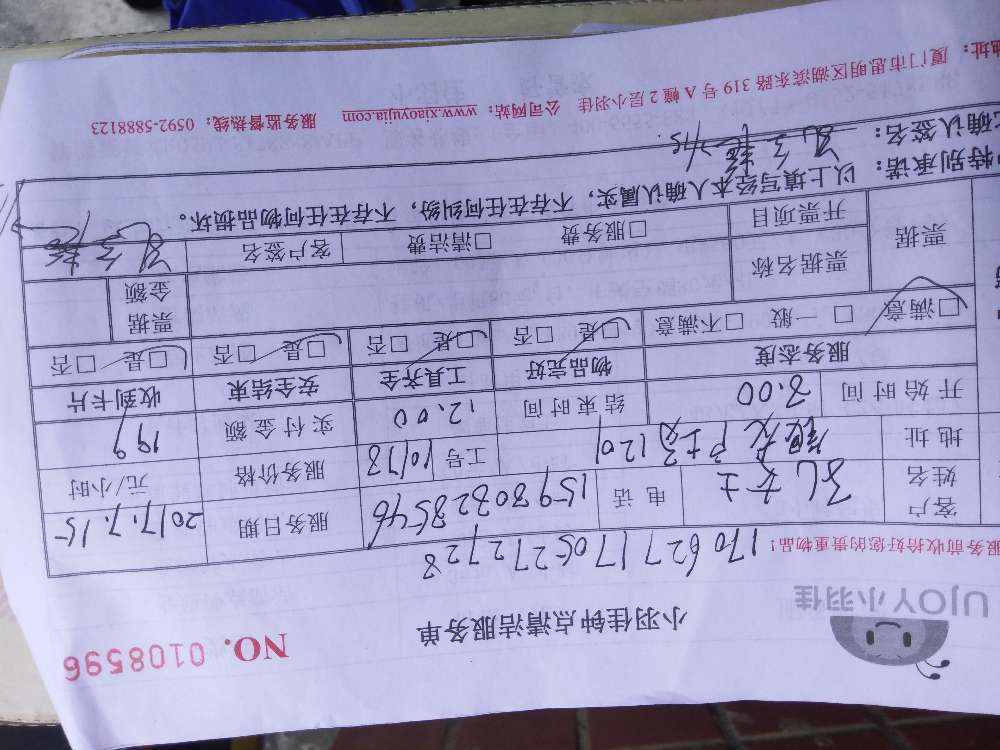 UJOY小羽佳
小羽佳钟点清洁服务单
NO. 0108596
服务前收拾好您的贵重物品！
170627170527272728
客户姓名 孔女士 电话 15980828546 服务日期 2017.7.15
地址 1201 工号 10178 服务价格 元/小时
开始时间 8.00 结束时间 12.00 实付金额 199
服务态度 物品完好 工具齐全 安全结束 收到卡片
□满意 □一般 □不满意 □是 □否 □是 □否 □是 □否 □是 □否
票据 票据名称 票据金额
开票项目 □服务费 □清洁费 客户签名
特别承诺： 以上填写经本人确认属实，不存在任何纠纷，不存在任何物品损坏。
确认签名： 7/15
地址： 厦门市思明区湖滨东路319号A幢2层小羽佳 公司网站：www.xiaoyujia.com 服务监督热线：0592-5888123